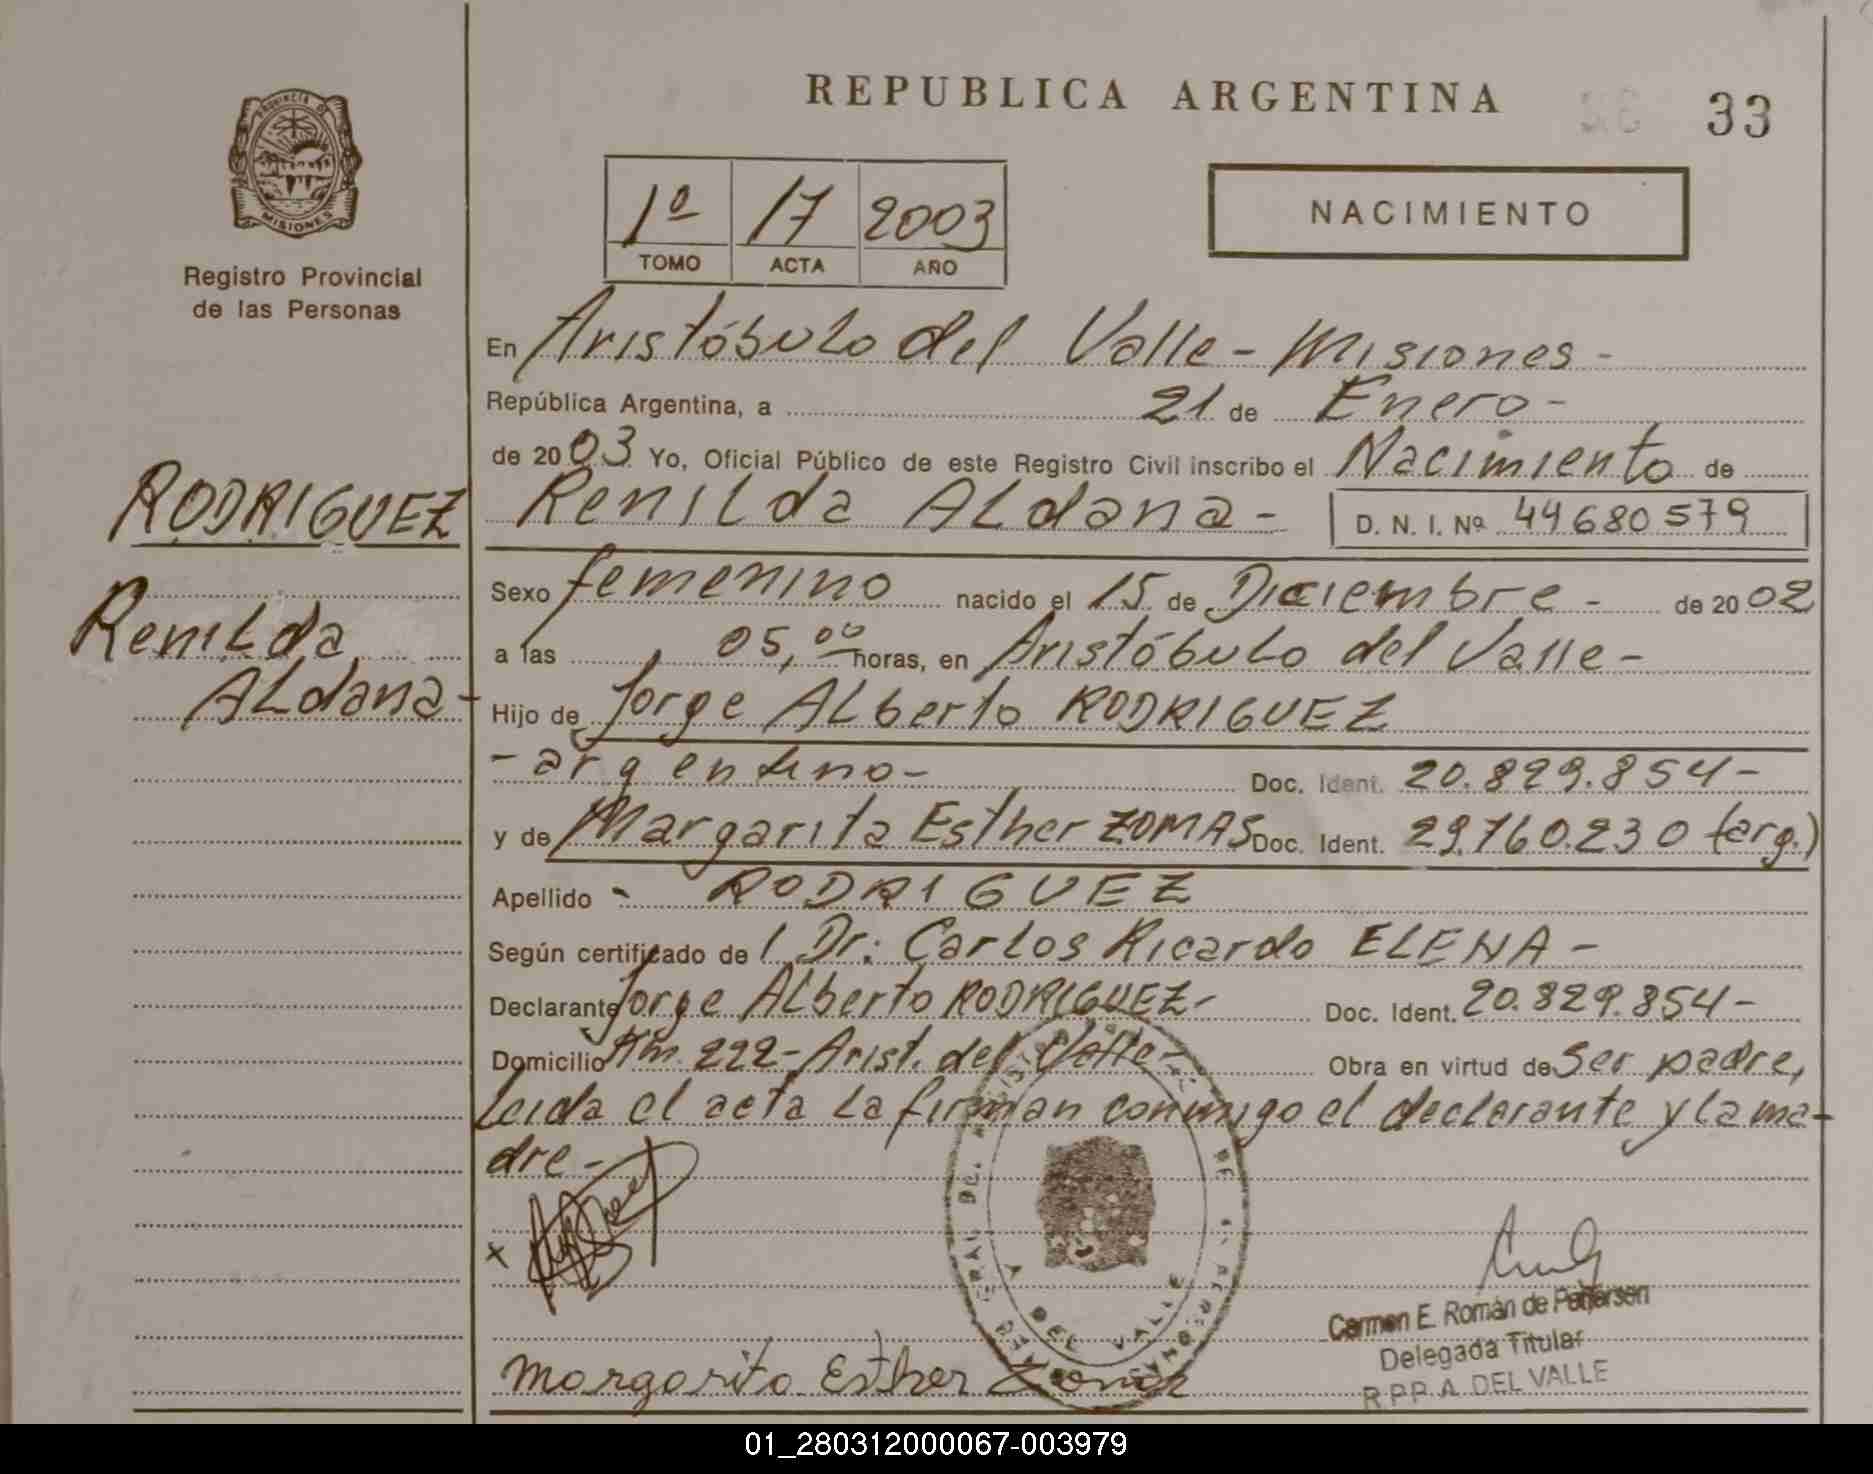 REPUBLICA ARGENTINA
33
PROVINCIA DE
MISIONES
Registro Provincial
de las Personas
1º 17 2003
TOMO ACTA AÑO
NACIMIENTO
En Aristóbulo del Valle - Misiones -
República Argentina, a 21 de Enero -
de 2003 Yo, Oficial Público de este Registro Civil inscribo el Nacimiento de
Renilda Aldana - D. N. I. Nº 44680579
RODRIGUEZ
Renilda
Aldana -
Sexo femenino nacido el 15 de Diciembre - de 2002
a las 05,00 horas, en Aristóbulo del Valle -
Hijo de Jorge Alberto RODRIGUEZ
- argentino - Doc. Ident. 20.829.854 -
y de Margarita Esther ZOMAS Doc. Ident. 29.760.230 (arg.)
Apellido - RODRIGUEZ
Según certificado de l Dr: Carlos Ricardo ELENA -
Declarante Jorge Alberto RODRIGUEZ - Doc. Ident. 20.829.854 -
Domicilio Km. 222 - Arist. del Valle - Obra en virtud de ser padre,
Leida el acta la firman conmigo el declarante y la ma-
dre -
DEL VALLE
Carmen E. Román de
Delegada Titular
R.P.P. A. DEL VALLE
Margarita Esther
01_280312000067-003979